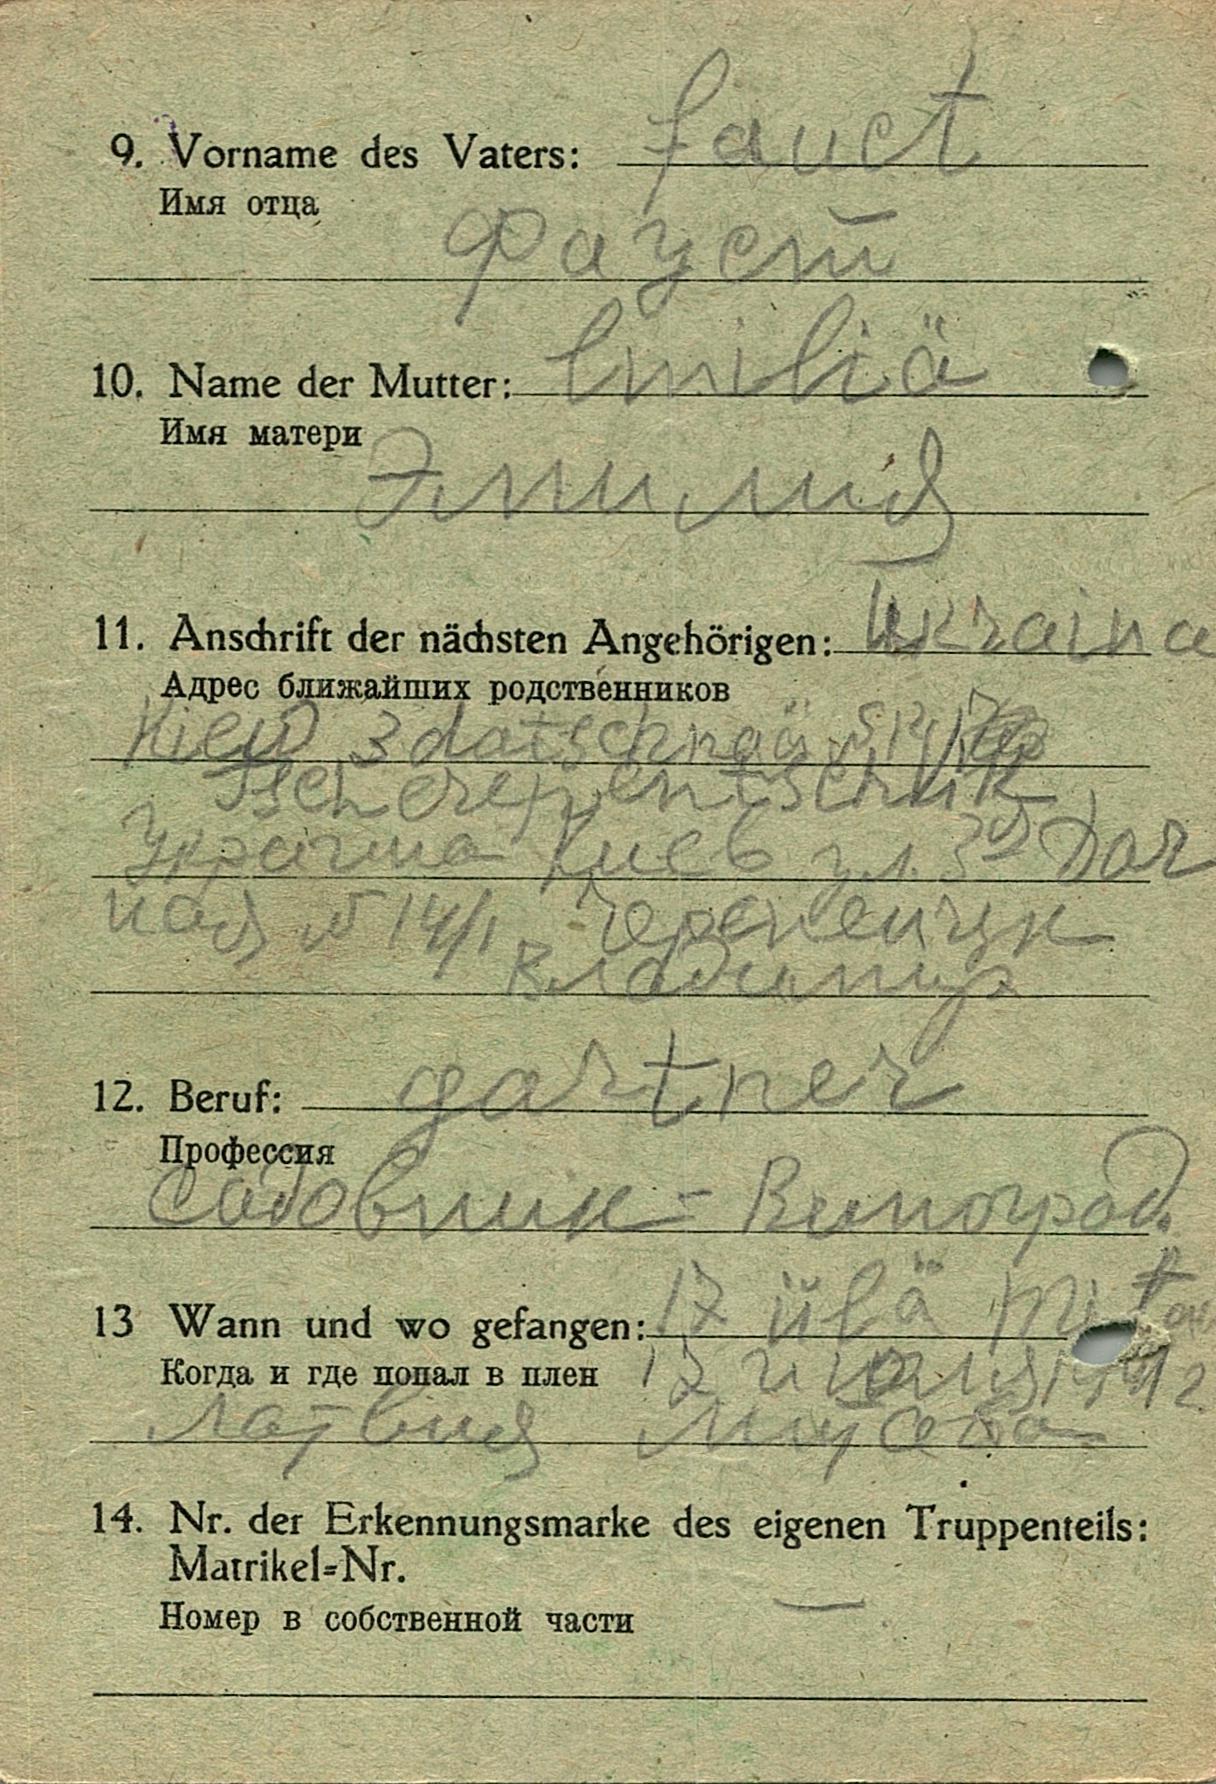 9. Vorname des Vaters: fauct
Имя отца
Фауст
10. Name der Mutter: Emiliä
Имя матери
Эмилия
11. Anschrift der nächsten Angehörigen: Ukraina
Адрес ближайших родственников
Kiew 3 datschnaä
Tscherepentschuk
Украина Киев ул. 3я Дач
ная № 14/1
Владимир
12. Beruf: gartner
Профессия
садовник = Виноград.
13 Wann und wo gefangen: 17 iülä
Когда и где попал в плен
Латвия
14. Nr. der Erkennungsmarke des eigenen Truppenteils:
Matrikel=Nr.
Номер в собственной части —